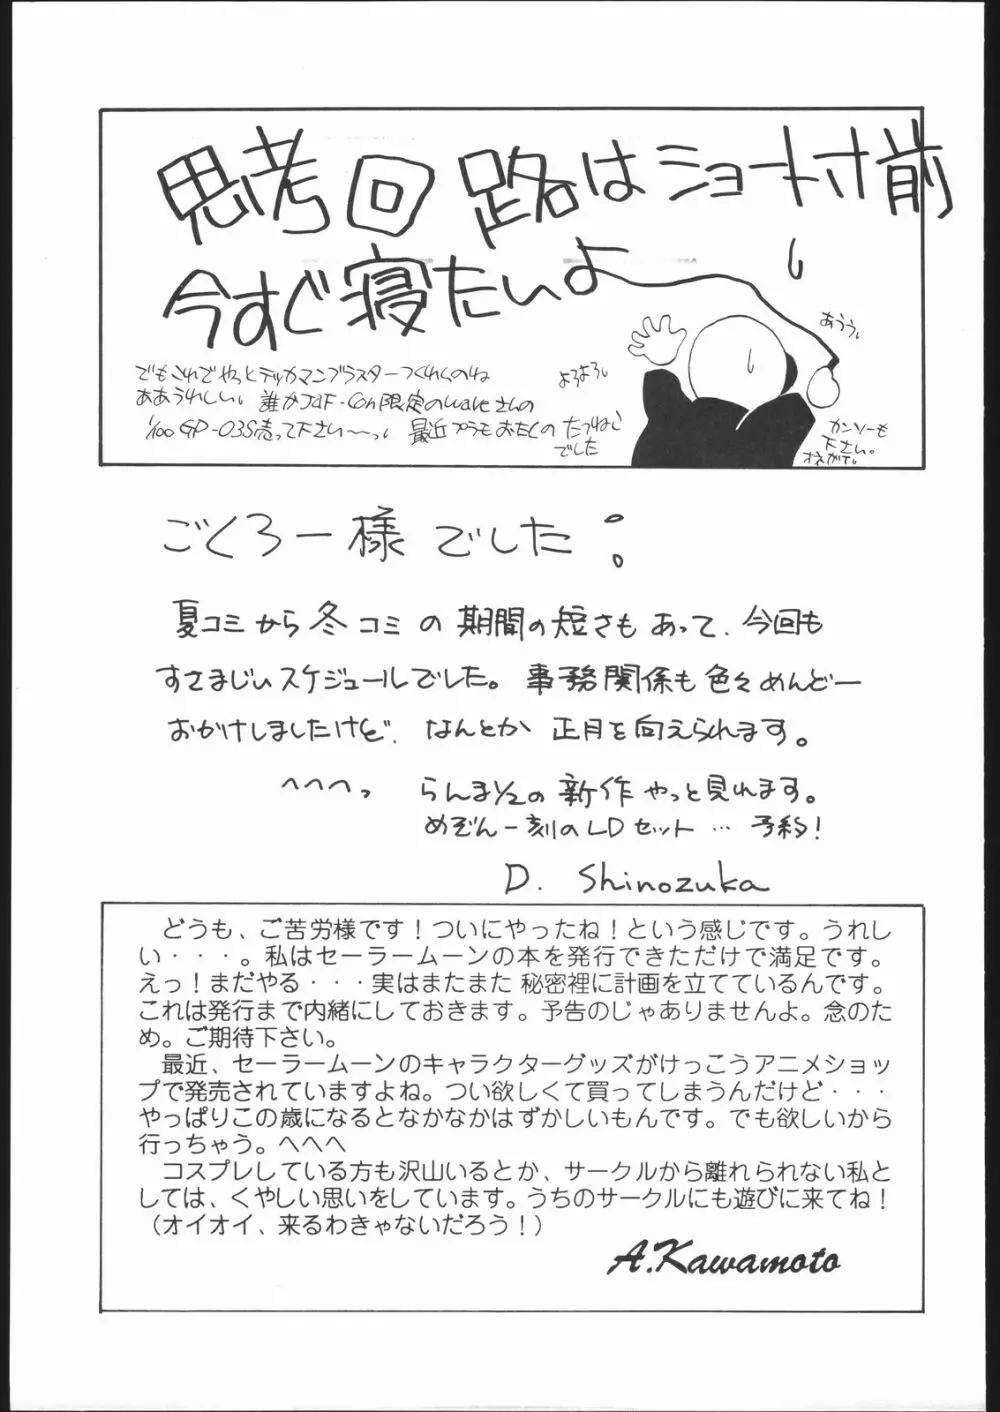 思考回路はショート寸前
今すぐ寝たいよ
あうぅ。
よろよろ。
でもこれでやっとテッカマンブラスターつくれるのね
ああうれしい。誰かJAF-CON限定のwaveさんの
1/100 GP-03S売って下さい〜っ。最近プラモおたくの たつねじ
でした
カンソーも
下さい。
オネガイ。
ごくろー様でした!
夏コミから冬コミの期間の短さもあって、今回も
すさまじいスケジュールでした。事務関係も色々めんどー
おかけしましたけど、なんとか正月を向えられます。
へへへっ らんま1/2の新作やっと見れます。
めぞん一刻のLDセット…予約!
D. Shinozuka
どうも、ご苦労様です！ついにやったね！という感じです。うれし
い・・・。私はセーラームーンの本を発行できただけで満足です。
えっ！まだやる・・・実はまたまた 秘密裡に計画を立てているんです。
これは発行まで内緒にしておきます。予告のじゃありませんよ。念のた
め。ご期待下さい。
最近、セーラームーンのキャラクターグッズがけっこうアニメショッ
プで発売されていますよね。つい欲しくて買ってしまうんだけど・・・
やっぱりこの歳になるとなかなかはずかしいもんです。でも欲しいから
行っちゃう。へへへ
コスプレしている方も沢山いるとか、サークルから離れられない私と
しては、くやしい思いをしています。うちのサークルにも遊びに来てね！
（オイオイ、来るわきゃないだろう！）
A.Kawamoto